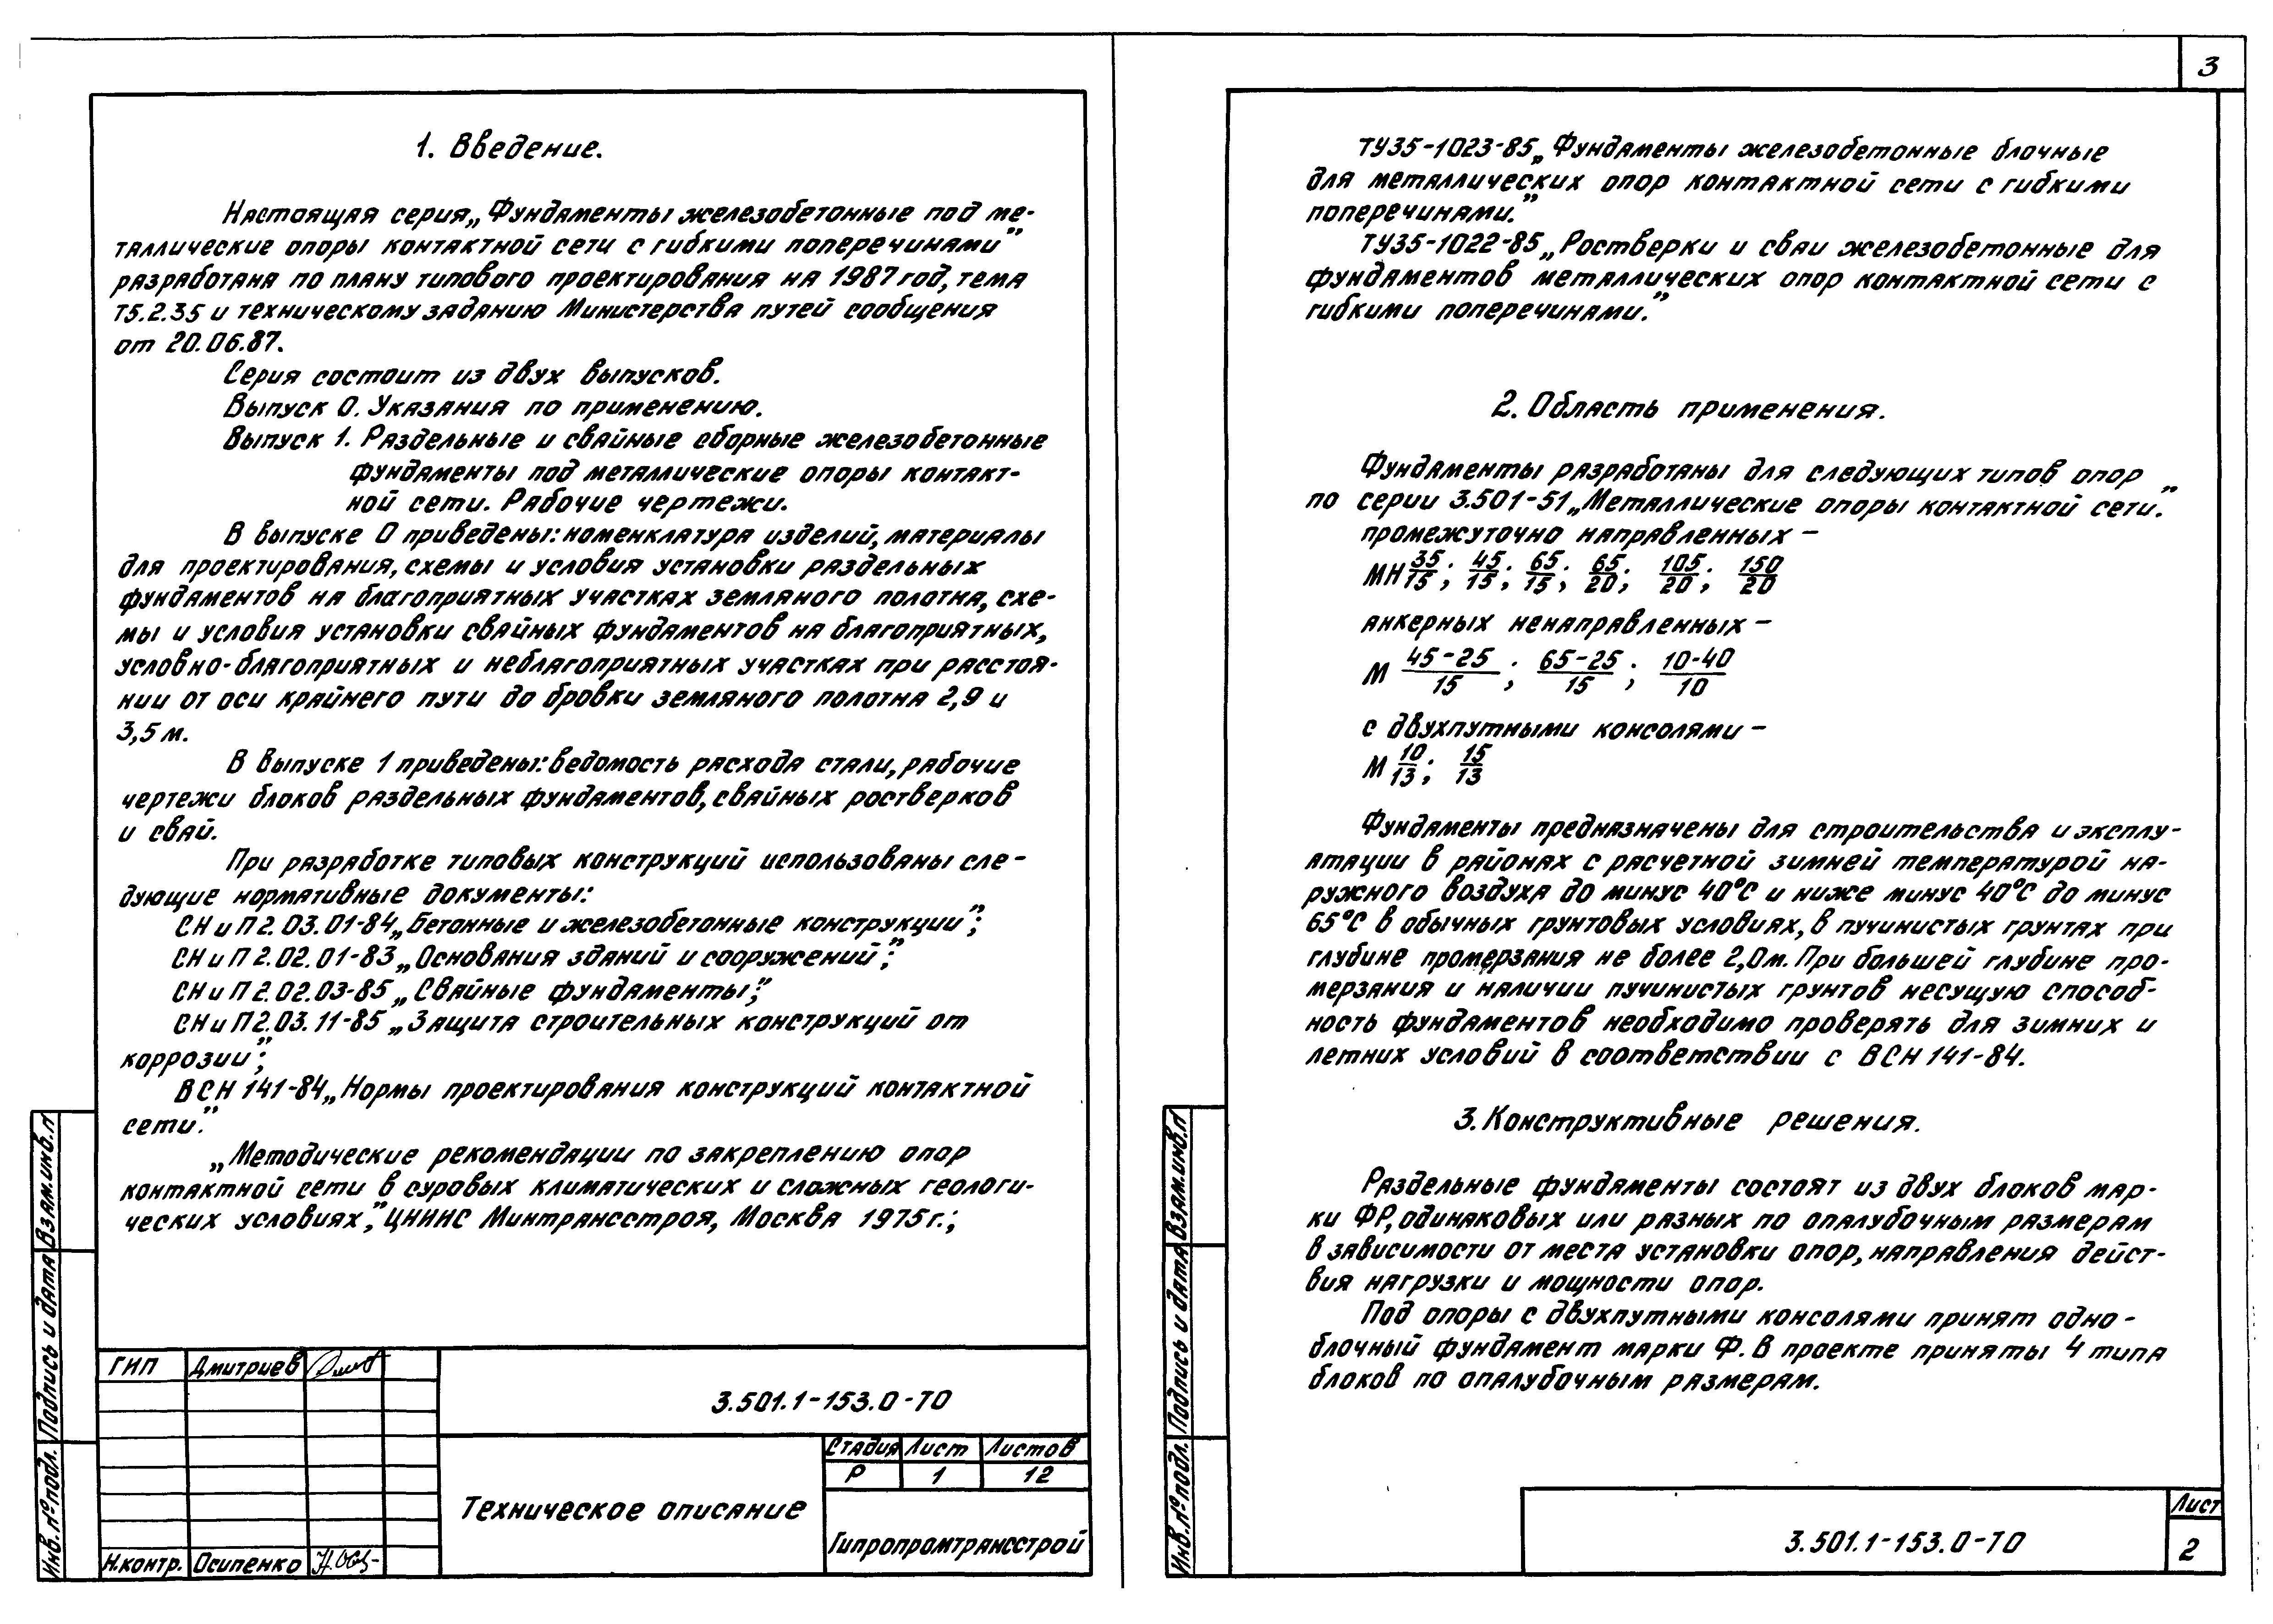 1. Введение.
Настоящая серия „Фундаменты железобетонные под ме-
таллические опоры контактной сети с гибкими поперечинами”
разработана по плану типового проектирования на 1987 год, тема
Т5.2.35 и техническому заданию Министерства путей сообщения
от 20.06.87.
Серия состоит из двух выпусков.
Выпуск 0. Указания по применению.
Выпуск 1. Раздельные и свайные сборные железобетонные
фундаменты под металлические опоры контакт-
ной сети. Рабочие чертежи.
В выпуске 0 приведены: номенклатура изделий, материалы
для проектирования, схемы и условия установки раздельных
фундаментов на благоприятных участках земляного полотна, схе-
мы и условия установки свайных фундаментов на благоприятных,
условно-благоприятных и неблагоприятных участках при расстоя-
нии от оси крайнего пути до бровки земляного полотна 2,9 и
3,5 м.
В выпуске 1 приведены: ведомость расхода стали, рабочие
чертежи блоков раздельных фундаментов, свайных ростверков
и свай.
При разработке типовых конструкций использованы сле-
дующие нормативные документы:
СНиП 2.03.01-84 „Бетонные и железобетонные конструкции”;
СНиП 2.02.01-83 „Основания зданий и сооружений”;
СНиП 2.02.03-85 „Свайные фундаменты”;
СНиП 2.03.11-85 „Защита строительных конструкций от
коррозии”;
ВСН 141-84 „Нормы проектирования конструкций контактной
сети.”
„Методические рекомендации по закреплению опор
контактной сети в суровых климатических и сложных геологи-
ческих условиях,” ЦНИИС Минтрансстроя, Москва 1975г.;
Взам.инв.№
Подпись и дата
Инв.№подл.
ГИП Дмитриев
Н.контр. Осипенко
3.501.1-153.0-ТО
Техническое описание
Стадия Лист Листов
Р 1 12
Гипропромтрансстрой
3
ТУ35-1023-85 „Фундаменты железобетонные блочные
для металлических опор контактной сети с гибкими
поперечинами.”
ТУ35-1022-85 „Ростверки и сваи железобетонные для
фундаментов металлических опор контактной сети с
гибкими поперечинами.”
2. Область применения.
Фундаменты разработаны для следующих типов опор
по серии 3.501-51 „Металлические опоры контактной сети.”
промежуточно направленных –
МН 35/15; 45/15; 65/15; 65/20; 105/20; 150/20
анкерных ненаправленных –
М 45-25/15; 65-25/15; 10-40/10
с двухпутными консолями –
М 10/13; 15/13
Фундаменты предназначены для строительства и эксплу-
атации в районах с расчетной зимней температурой на-
ружного воздуха до минус 40°С и ниже минус 40°С до минус
65°С в обычных грунтовых условиях, в пучинистых грунтах при
глубине промерзания не более 2,0м. При большей глубине про-
мерзания и наличии пучинистых грунтов несущую способ-
ность фундаментов необходимо проверять для зимних и
летних условий в соответствии с ВСН 141-84.
3. Конструктивные решения.
Раздельные фундаменты состоят из двух блоков мар-
ки ФР, одинаковых или разных по опалубочным размерам
в зависимости от места установки опор, направления дейст-
вия нагрузки и мощности опор.
Под опоры с двухпутными консолями принят одно-
блочный фундамент марки Ф. В проекте приняты 4 типа
блоков по опалубочным размерам.
Взам.инв.№
Подпись и дата
Инв.№подл.
3.501.1-153.0-ТО
Лист
2